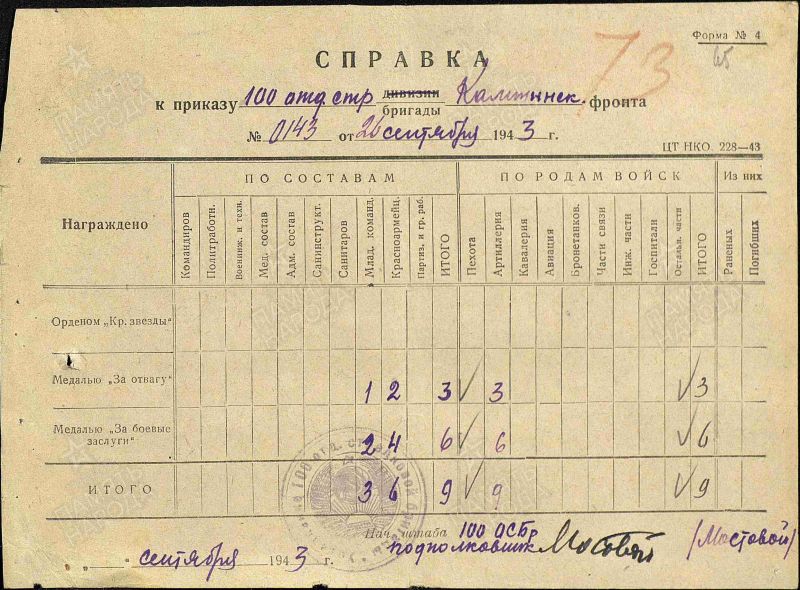 Форма № 4
73
65
СПРАВКА
к приказу 100 отд. стр дивизии Калининск. фронта
бригады
№ 0143 от 26 сентября 1943 г.
ЦТ НКО. 228—43
Награждено ПО СОСТАВАМ ПО РОДАМ ВОЙСК Из них
Командиров Политработн. Военинж. и техн. Мед. состав Адм. состав Санинструкт. Санитаров Млад. команд. Красноармейц. Партиз. и гр. раб. ИТОГО Пехота Артиллерия Кавалерия Авиация Бронетанков. Части связи Инж. части Госпитали Остальн. части ИТОГО Раненых Погибших
Орденом „Кр. звезды"
Медалью „За отвагу" 1 2 3 ✓ 3 ✓ 3
Медалью „За боевые заслуги" 2 4 6 ✓ 6 ✓ 6
ИТОГО 3 6 9 ✓ 9 ✓ 9
Нач. штаба 100 ОСБр
подполковник Мостовой (Мостовой)
„ " сентября 1943 г.
ПАМЯТЬ НАРОДА